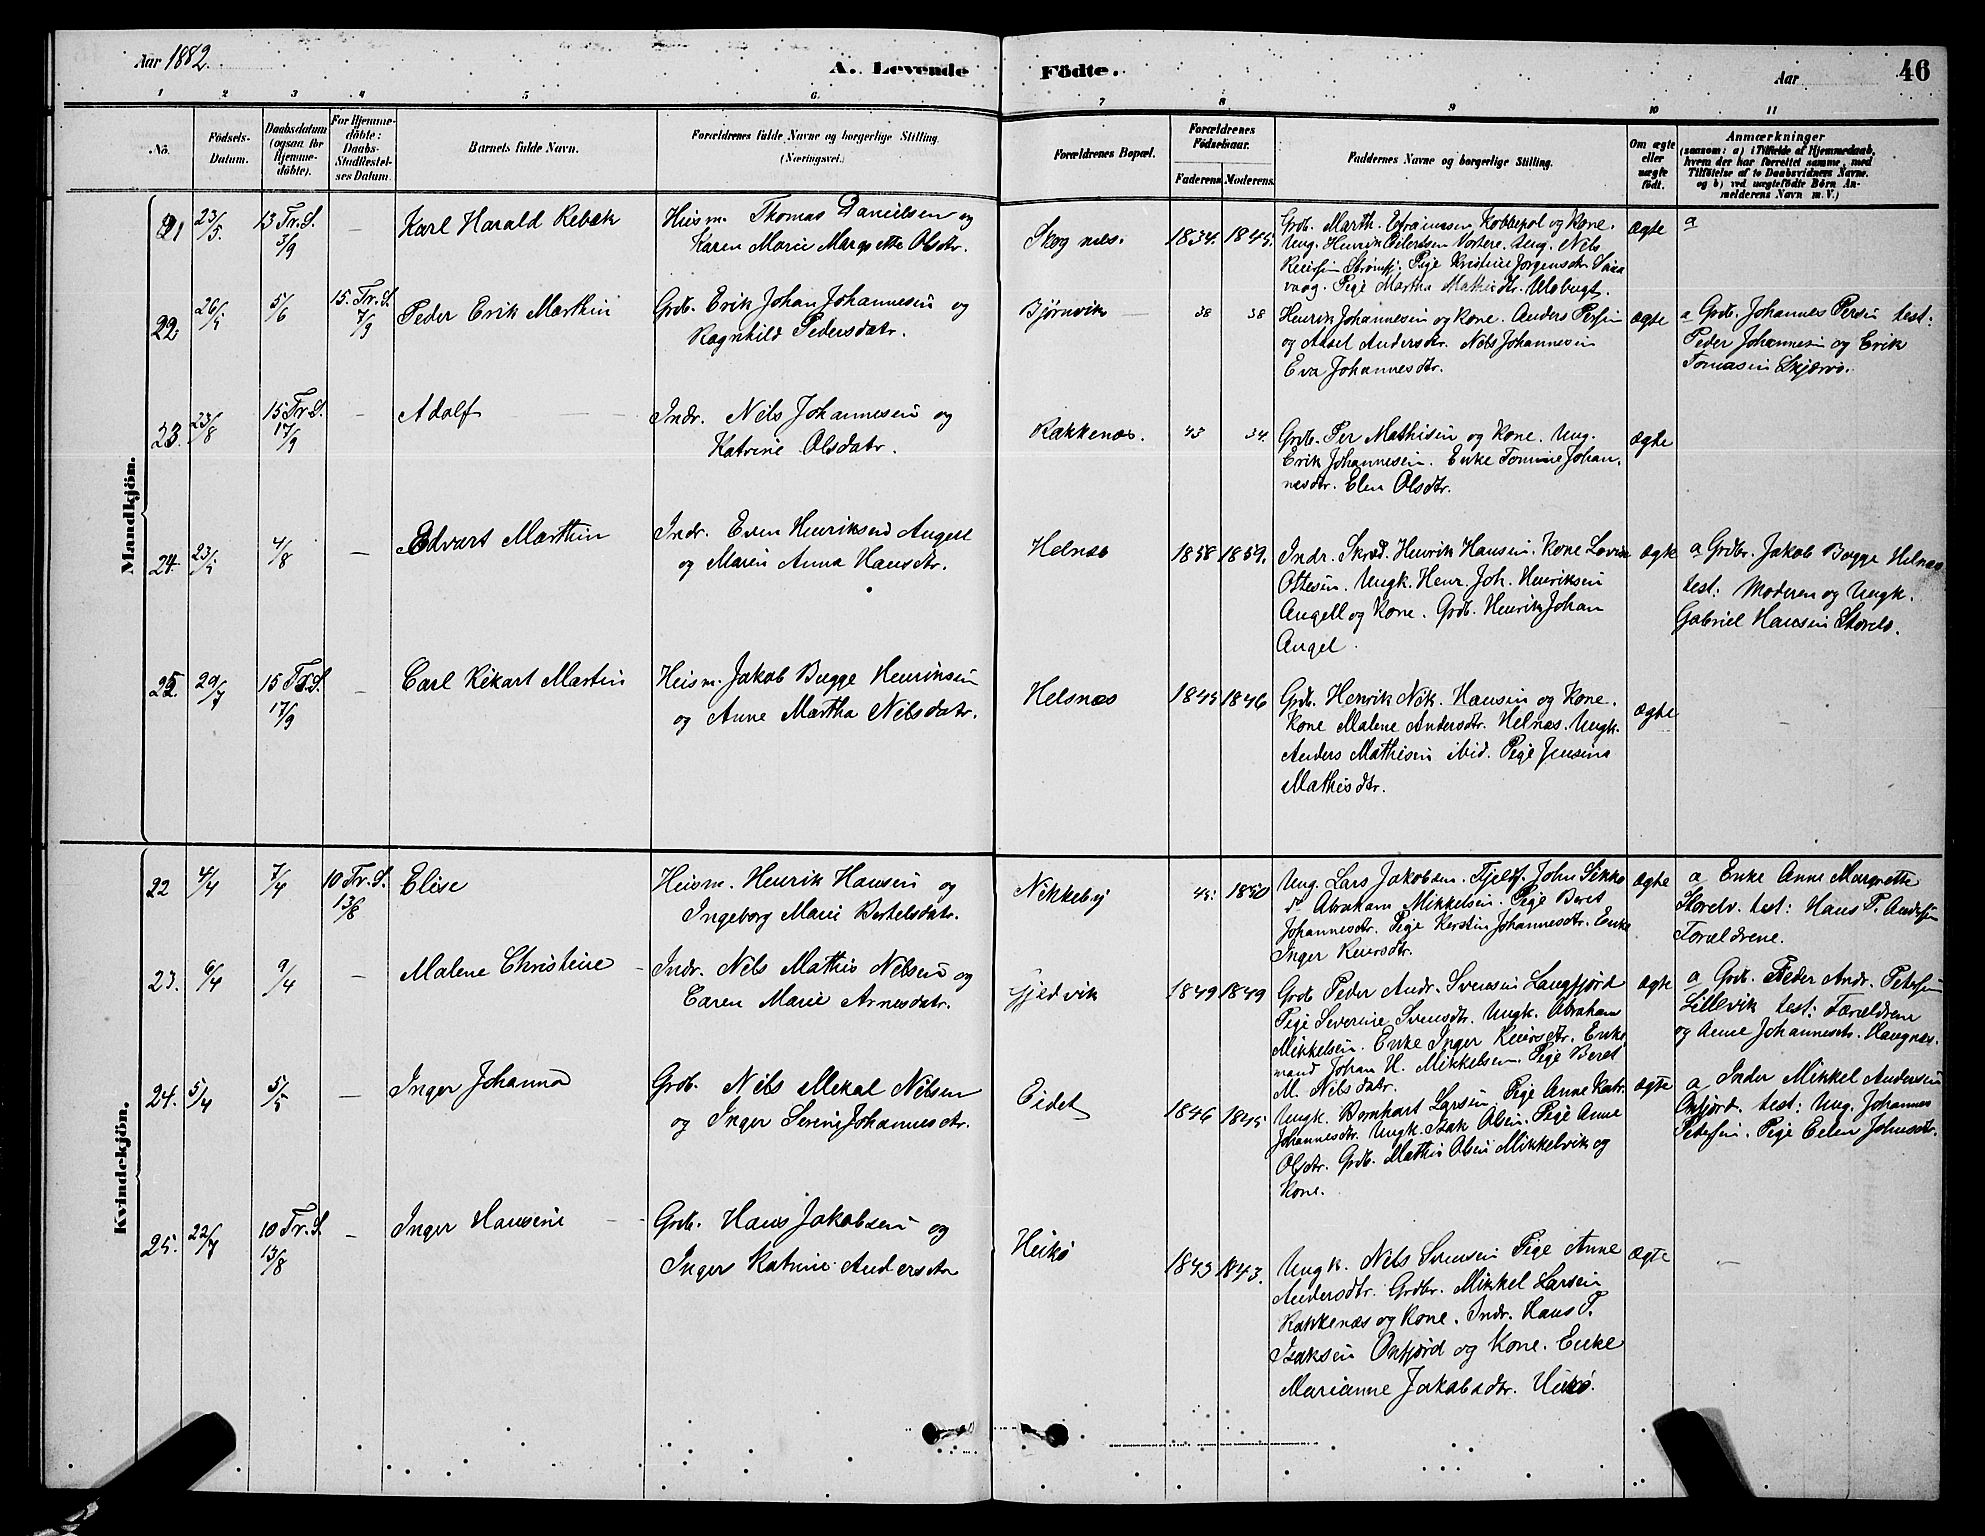 Aar 1882.
A. Levende Födte.
Aar
46
1 2 3 4 5 6. 7 8 9 10 11
No.
Födsels-Datum.
Daabsdatum (ogsaa for Hjemme-döbte).
For Hjemme-döbte: Daabs-Stadfæstel-ses Datum.
Barnets fulde Navn.
Forældrenes fulde Navne og borgerlige Stilling.
(Næringsvei.)
Forældrenes Bopæl.
Forældrenes Födselsaar.
Faderens. Moderens.
Faddernes Navne og borgerlige Stilling.
Om ægte eller uægte födt.
Anmærkninger
(saasom: a) i Tilfælde af Hjemmedaab,
hvem der har forrettet samme, med
Tilföielse af to Daabsvidners Navne.
og b) ved uægtefödte Börn An-
melderens Navn m. V.)
Mandkjön.
21 23/5. 13 Tr. S. 3/9 – Karl Harald Rebæk
Heism. Thomas Danielsen og
Karen Marie Margrette Olsdtr.
Skognes. 1834. 1845.
Grdb. Marth. Efraimsen Kobbepol og Kone.
Ung. Henrik Eilertsen Vortere. Ung. Nils
Reiersen Strømfj. Pige Kristine Jorgensdtr
vaag. Pige Martha Mathisdtr. Ulobugt.
ægte a
22. 26/5 5/6 15. Tr. S. 7/9 Peder Erik Marthin
Grdb. Erik Johan Johannesen og
Ragnhild Pedersdatr.
Bjørnvik 38 38
Henrik Johannesen og Kone. Anders Persen
og Aksel Andersdtr. Nils Johannesen
Eva Johannesdtr.
ægte
a Grdb. Johannes Persen test:
Peder Johannesen og Erik
Tomasen Skjervø.
23. 23/8 15 Tr. S. 17/9 – Adolf
Indr. Nils Johannesen og
Katrine Olsdatr.
Rakkenæs. 43 34.
Grdb. Per Mathisen og Kone. Ung.
Erik Johannesen. Enke Tomine Johan.
nesdtr. Elen Olsdtr.
ægte
24. 23/5 4/8 – Edvart Marthin
Indr. Even Henriksen Angell
og Maren Anna Hansdtr.
Helnæs 1858 1859.
Indr. Skræd. Henrik Hansen. Kone Lovise
Ottesen. Ungk. Henr. Joh. Henriksen
Angell og Kone. Grdb. Henrik Johan
Angel.
ægte
a Grdbr. Jakob Bugge Helnæs
test: Moderen og Ungk.
Gabriel Hansen Storels.
25. 29/7 15 Tr. S. 17/9 – Carl Rikart Martin
Heism. Jakob Bugge Henriksen
og Anne Martha Nilsdatr.
Helsnæs 1845 1846
Grdb. Henrik Nik. Hansen og Kone.
Kone Malene Andersdtr. Helnæs. Ungk.
Anders Mathisen ibid. Pige Jensine
Mathisdtr.
ægte
Kvindekjön.
22 4/4 7/4 10 Tr. S. 13/8 Elise
Heism. Henrik Hansen og
Ingeborg Marie Bertelsdatr.
Nikkeby 45. 1850
Ung. Lars Jakobsen. Fjelf. John Sikko
Abraham Mikkelsen. Pige Beret
Johannesdtr. Pige Kerstin Johannesdtr. Enke
Inger Reiersdtr.
ægte
a Enke Anne Margrette
Storelv. test: Hans P. Andersen
Forældrene.
23. 6/4 9/4 – Malene Christine
Indr. Nils Mathis Nilsen og
Caren Marie Arnesdatr.
Gjeldvik 1849 1849
Grdb Peder Andr. Svensen Langfjord
Pige Severine Svensdtr. Ungk. Abraham
Mikkelsen. Enke Inger Reiersdtr. Enke
mand Johan H. Mikkelsen. Pige Beret
M. Nilsdatr.
ægte
a Grdb. Peder Andr. Petersen
Lillevik test: Forældrene
og Anne Johannesdtr. Haugnæs.
24. 5/4 5/5 Inger Johanna
Grdb. Nils Mekal Nilsen
og Inger Serine Johannesdtr.
Eidet 1846 1845
Ungk. Bernhart Larsen. Pige Anne Katr.
Johannesdtr. Ungk. Isak Olsen. Pige Anne
Olsdtr. Grdb. Mathis Olsen Mikkelvik og
Kone.
ægte
a Inder Mikkel Andersen
Oxfjord. test: Ung. Johannes
Petersen. Pige Elen Johnsdtr.
25. 22/7 10 Tr. S. 13/8 – Inger Hansine
Grdb. Hans Jakobsen og
Inger Katrine Andersdtr
Heikø 1843 1843.
Ungk. Nils Svensen Pige Anne
Andersdtr. Grdbr. Mikkel Larsen
Rakkenæs og Kone. Indr. Hans P.
Isaksen Oxfjord og Kone. Enke
Marianne Jakobsdtr. Heikø.
ægte –